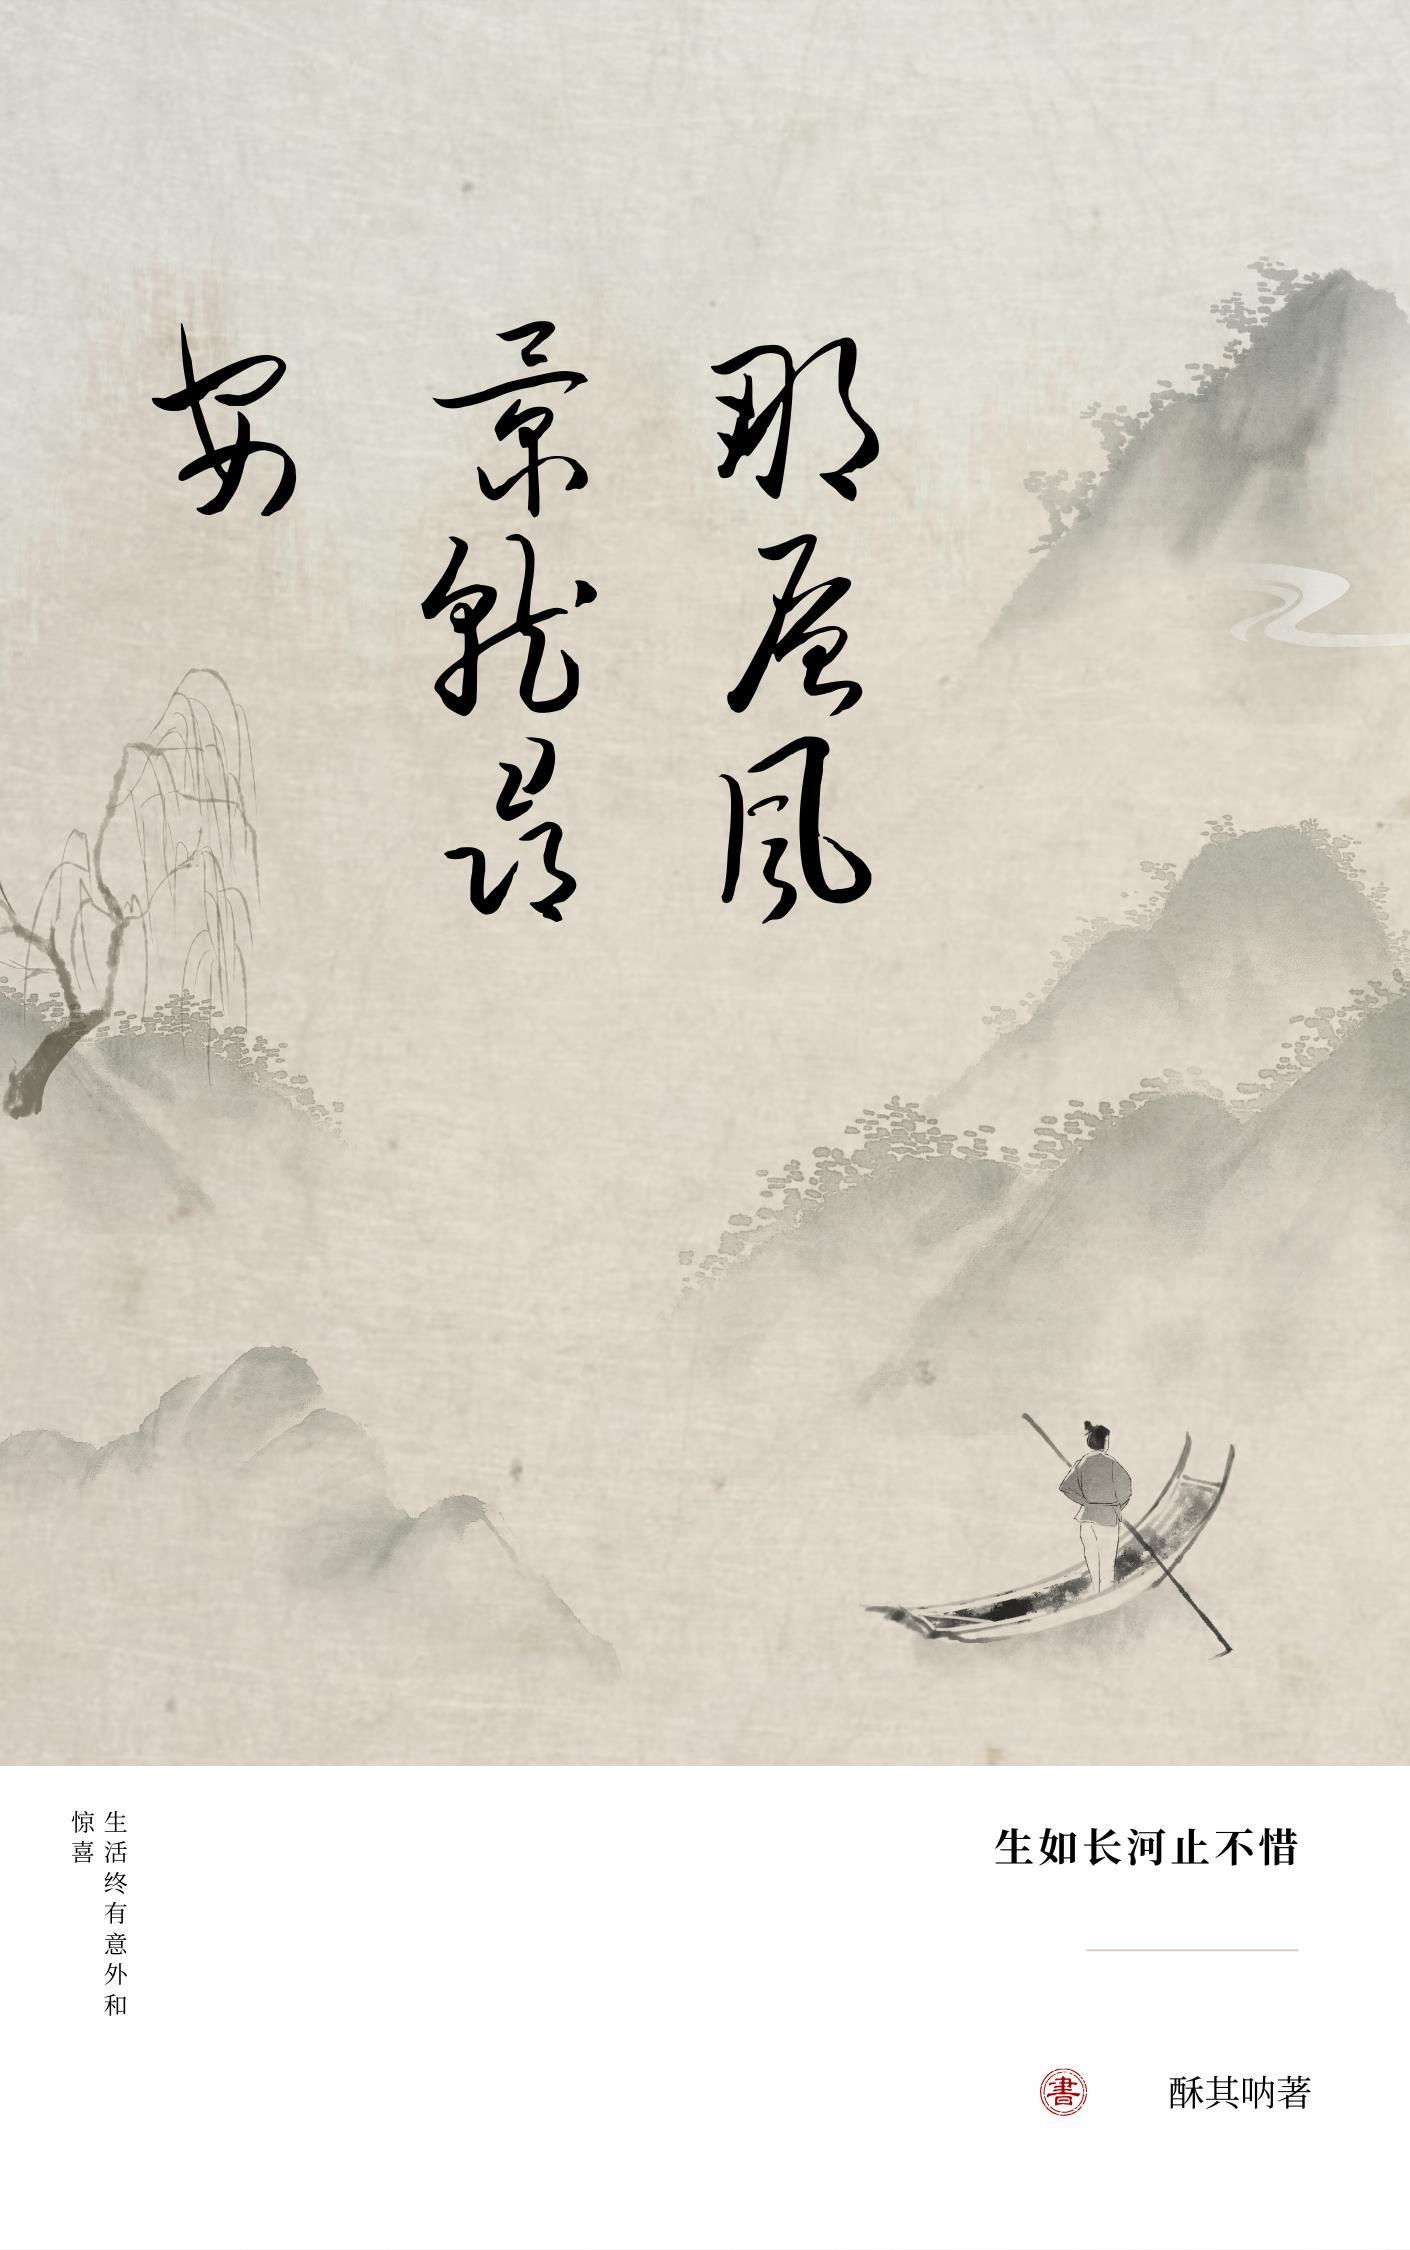 那風
景就
安
生如长河止不惜
生活终有意外和
惊喜
書
酥其呐著